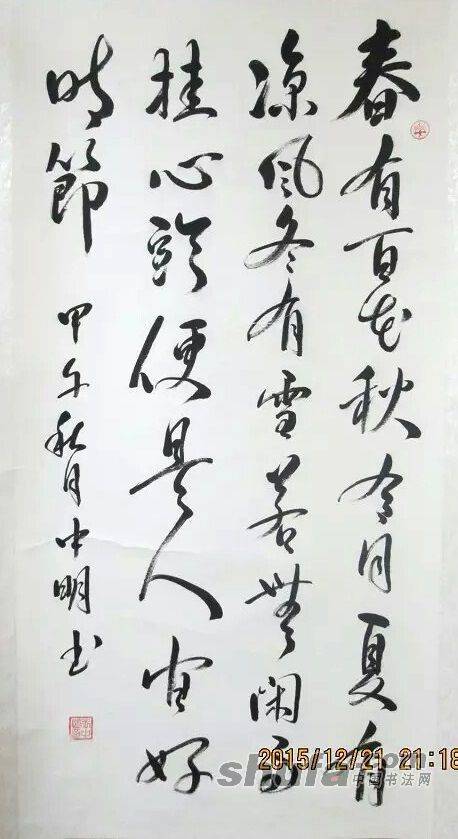 春有百花秋有月夏有
凉风冬有雪若無闲事
挂心頭便是人间好
时節
甲午秋月中明书
2015/12/21 21:18
中国书法网